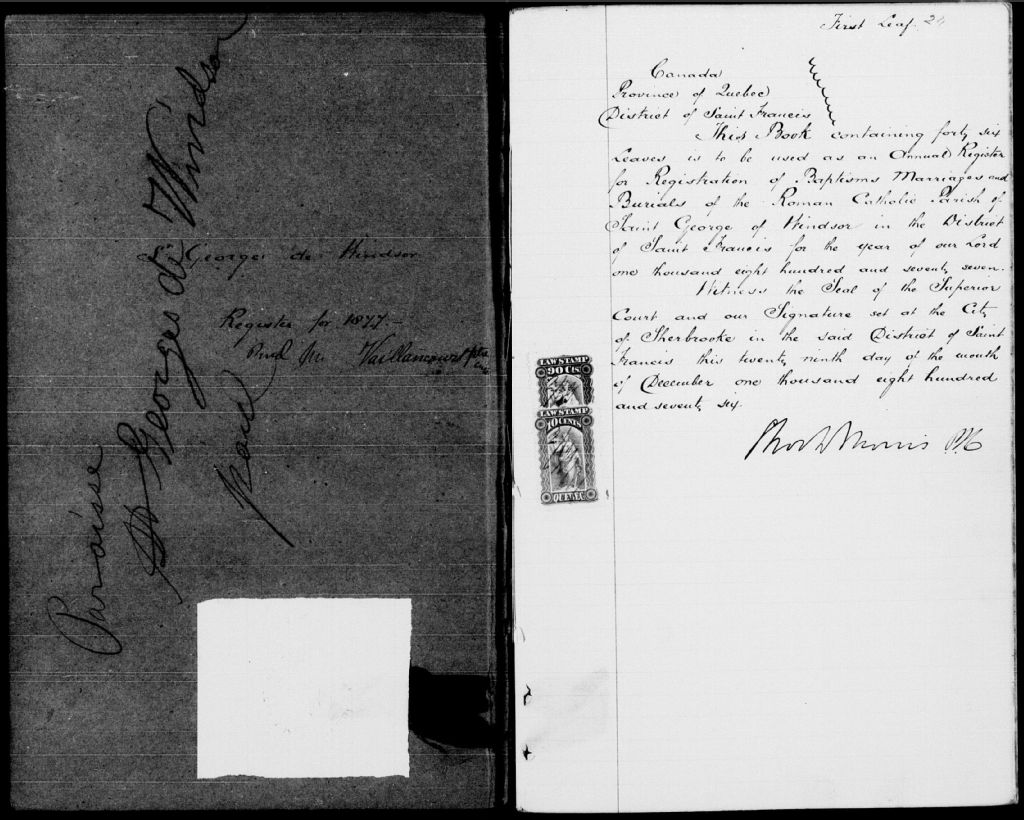 Paroisse
St Georges de Windsor
paid
St George de Windsor
Register for 1877
Vaillancourt
First Leaf. 24
Canada
Province of Quebec
District of Saint Francis
This Book containing forty six
Leaves is to be used as an Annual Register
for Registration of Baptisms Marriages and
Burials of the Roman Catholic Parish of
Saint George of Windsor in the District
of Saint Francis for the year of our Lord
one thousand eight hundred and seventy seven.
Witness the Seal of the Superior
Court and our Signature set at the City
of Sherbrooke in the said District of Saint
Francis this twenty ninth day of the month
of December one thousand eight hundred
and seventy six.
Morris
LAW STAMP
90 CTS
LAW STAMP
10 CENTS
QUEBEC